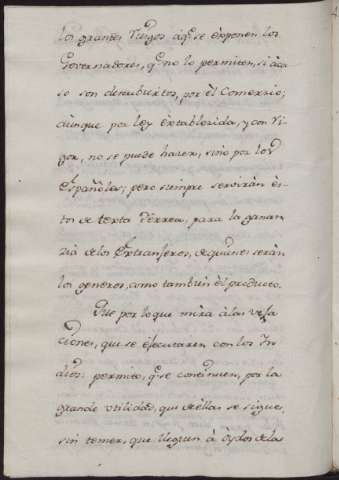 los grandes riesgos áqe. se exponen los
Governadores, qe. no lo permiten, si àca
so son descubiertos, por el Comerzio;
aùnque por ley extablezida, y con vi
gor, no se puede hazer, sino por los
Españoles; pero siempre serviràn es
tos de texta ferrea, para la ganan
zia de los Extranferos, de quienes seràn
los generos, como tambien el producto.
Que por lo que mira à las vefa
ciones, que se éjecutaren con los Yn
dios: permito, qe. se continuen, por la
grande utilidad, que de ellas se sigue,
sin temer, que lleguen à oydos de las